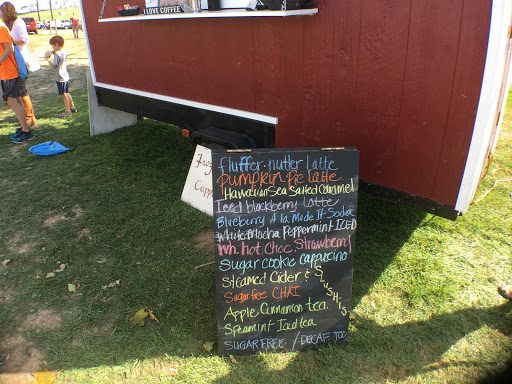 I LOVE COFFEE
Froz
Capp
fluffer-nutter latte
Pumpkin Pie latte
Hawaiian Sea Salted Caramel
Iced blackberry Latte
Blueberry A la Mode It-Soda
White Mocha Peppermint ICED
Wh. hot. Choc Strawberry
Sugar cookie cappuccino
Steamed Cider & Slushis
Sugar free CHAI
Apple Cinnamon tea
Spearmint Iced tea
SUGAR FREE / DECAF TOO